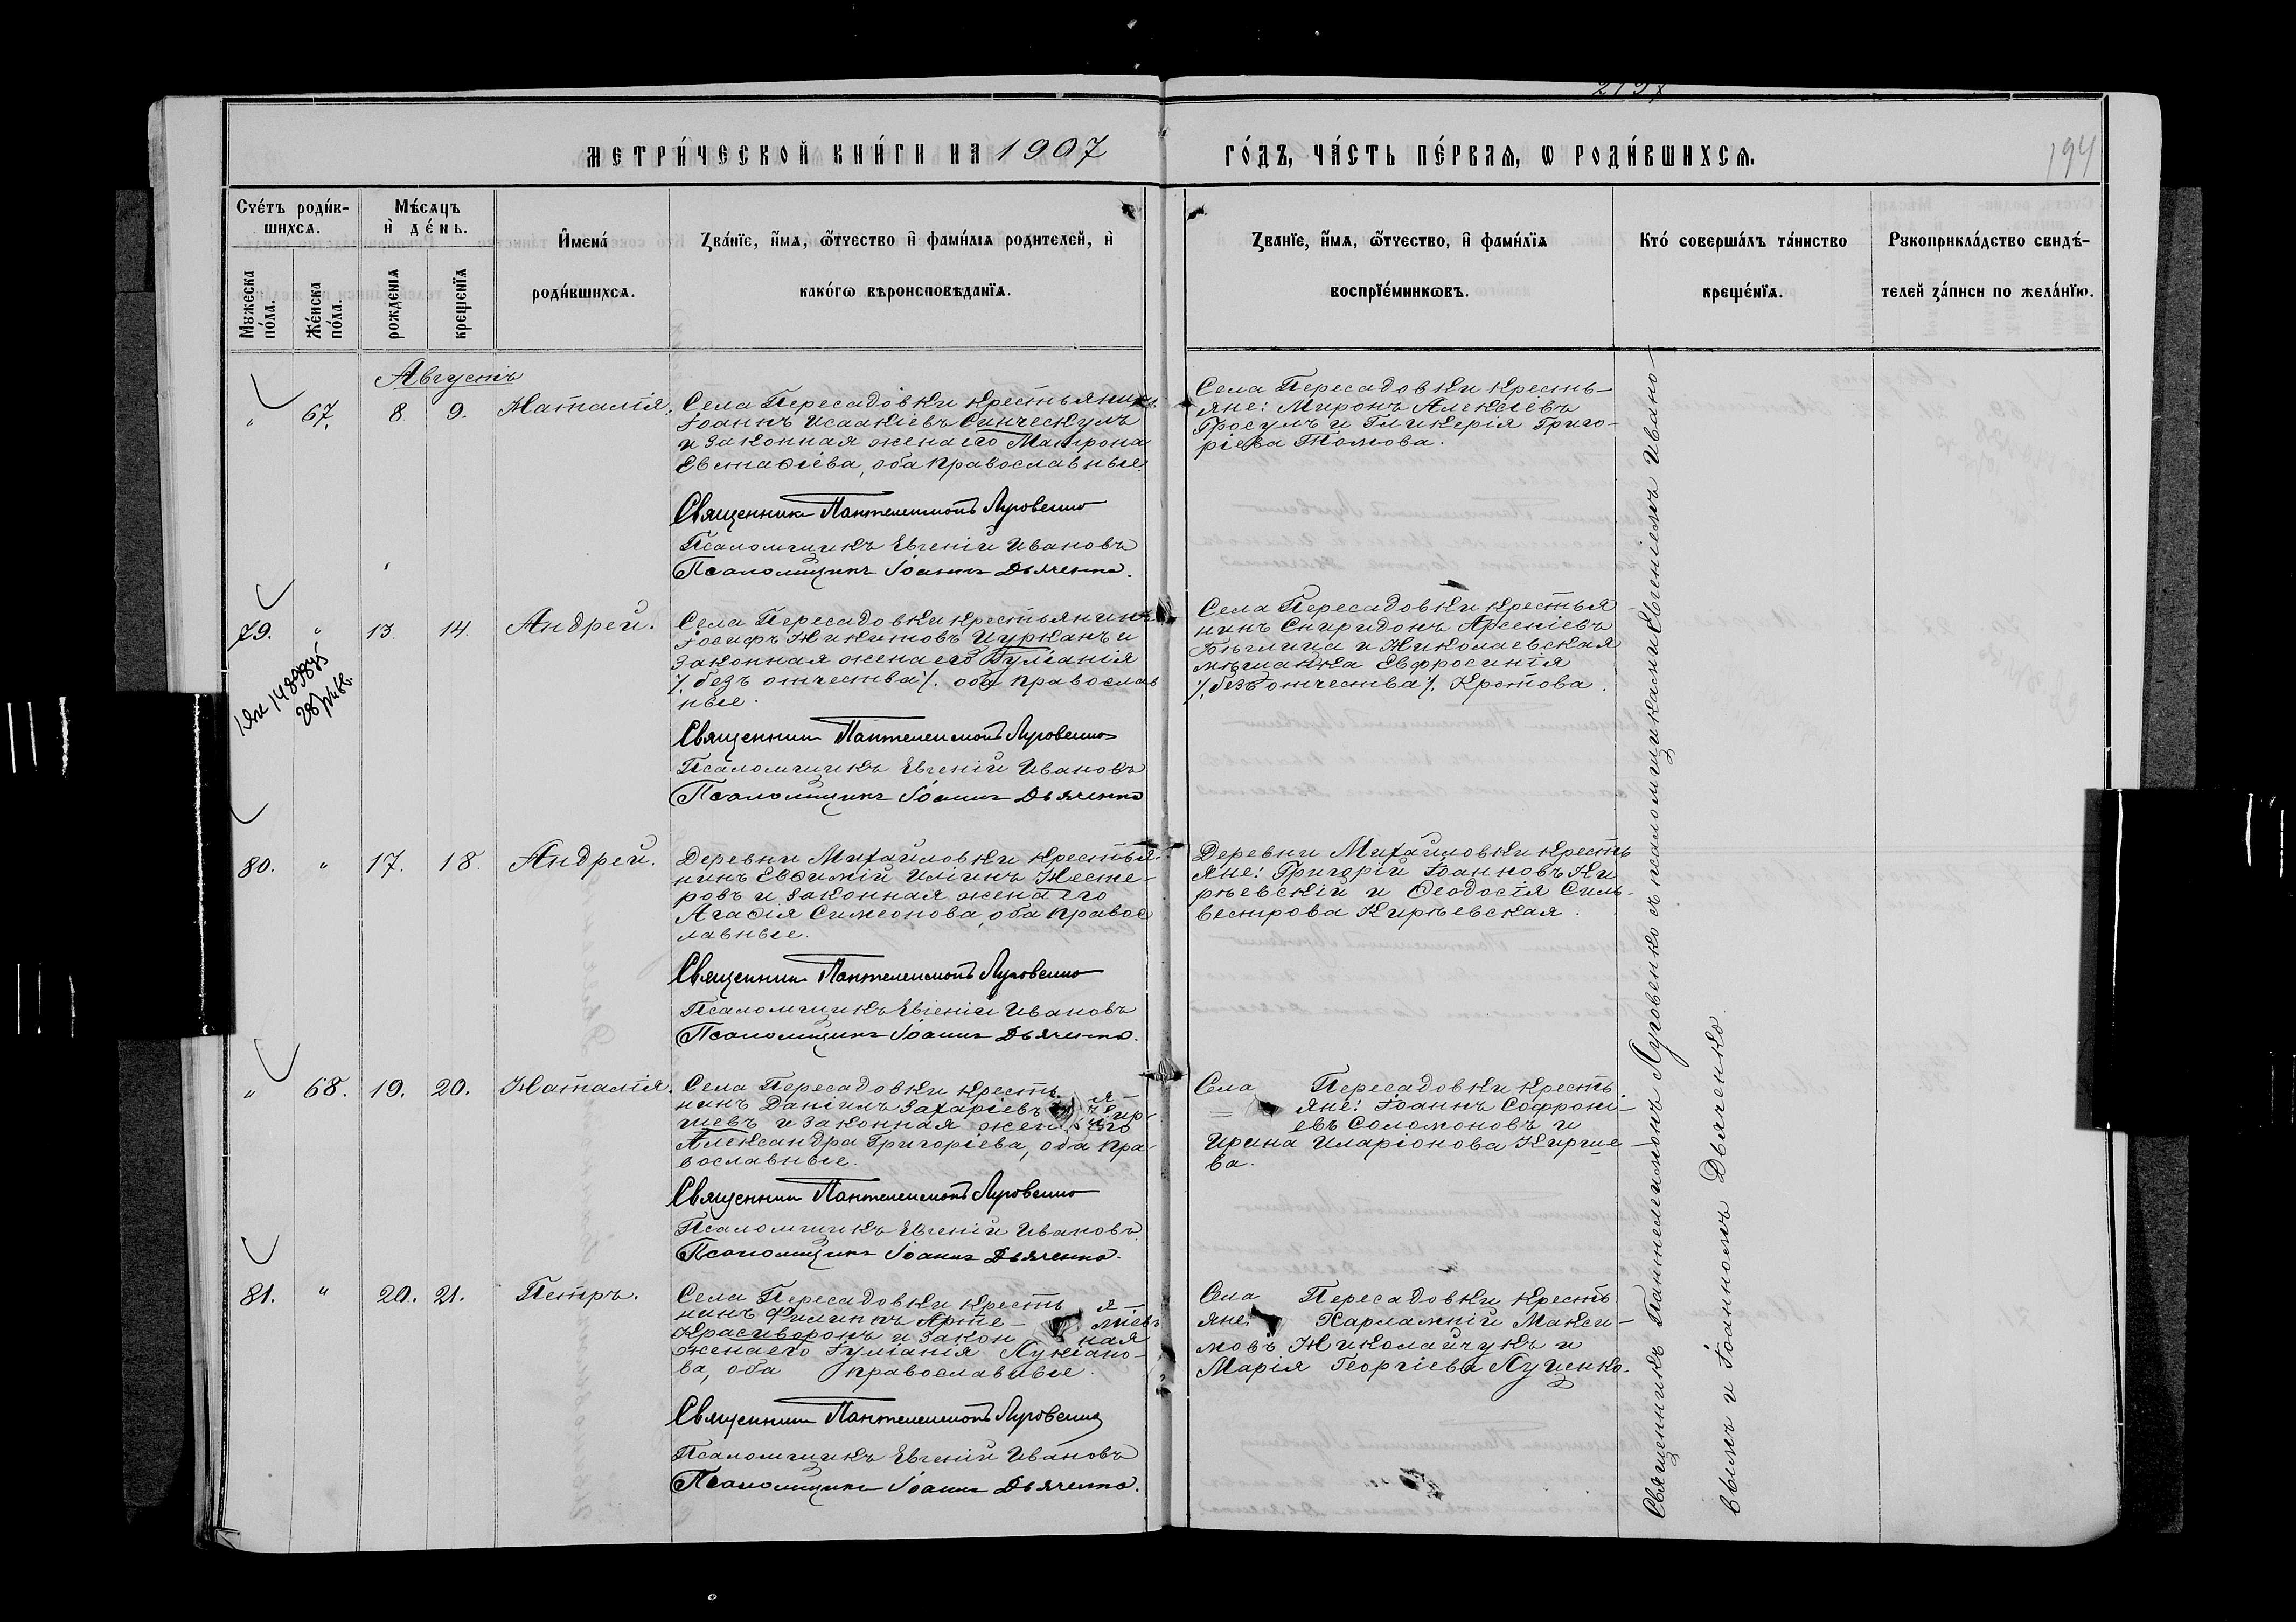 МЕТРИ́ЧЕСКОЙ КНИ́ГИ НА 1907
ГО́ДЪ, ЧА́СТЬ ПЕ́РВАѦ, Ѡ РОДИ́ВШИХСѦ.
194
Счéтъ роди́в-
шихсѧ.
Мужеска
по́ла.
Же́нска
по́ла.
Мѣ́сѧцъ
и҆ де́нь.
рожденїѧ
крещенїѧ
И҆мена́
роди́вшихсѧ.
Зва́нїе, и҆́мѧ, ѻ҆́тчество и҆ фами́лїѧ родителей, и҆
како́гѡ вѣроисповѣданїѧ.
Званїе, и҆́мѧ, ѻ҆́тчество, и҆ фами́лїѧ
воспрїе́мникѡвъ.
Кто́ соверша́лъ та́инство
креще́нїѧ.
Рꙋкоприкла́дство свидѣ́-
телей за́писи по жела́нїю.
Августъ
" 67. 8 9. Наталія.
Села Пересадовки крестьянинъ
Іоаннъ Исаакіевъ Синческулъ
и законная жена его Матрона
Евстафіева, оба православные.
Священникъ Пантелеимонъ Луговенко
Псаломщикъ Евгеній Ивановъ
Псаломщикъ Іоаннъ Дьяченко.
Села Пересадовки кресть-
яне: Миронъ Алексіевъ
Гросулъ и Гликерія Григо-
ріева Томова.
79. " 13. 14. Андрей.
Села Пересадовки крестьянинъ
Іосифъ Никитовъ Цурканъ и
законная жена его Іуліанія
/. безъ отчества /. оба православ
ные.
Священникъ Пантелеимонъ Луговенко
Псаломщикъ Евгеній Ивановъ
Псаломщикъ Іоаннъ Дьяченко
Села Пересадовки крестья
нинъ Спиридонъ Арсеніевъ
Бѣглица и Николаевская
мѣщанка Евфросинія
/. безъ отчества /. Кротова.
80. " 17. 18 Андрей.
Деревни Михайловки крестья
нинъ Евѳимій Иліинъ Несте-
ровъ и законная жена его
Агаѳія Симеонова, оба правос
лавные.
Священникъ Пантелеимонъ Луговенко
Псаломщикъ Евгеній Ивановъ
Псаломщикъ Іоаннъ Дьяченко.
Деревни Михайловки кресть
яне: Григорій Іоанновъ Ки
рѣевскій и Ѳеодосія Силь-
вестрова Кирѣевская.
" 68. 19. 20. Наталія.
Села Пересадовки кресть я-
нинъ Даніилъ Захаріевъ Чир-
шевъ и законная жена его
Александра Григоріева, оба пра-
вославные.
Священникъ Пантелеимонъ Луговенко
Псаломщикъ Евгеній Ивановъ
Псаломщикъ Іоаннъ Дьяченко.
Села Пересадовки кресть
яне: Іоаннъ Софроні-
евъ Соломоновъ и
Ирина Иларіонова
ва.
81. " 20. 21. Петръ.
Села Пересадовки кресть я-
нинъ Филиппъ Арте- міевъ
Красиворонъ и закон ная
жена его Іуліанія Лукіано-
ва, оба православные.
Священникъ Пантелеимонъ Луговенко
Псаломщикъ Евгеній Ивановъ
Псаломщикъ Іоаннъ Дьяченко.
Села Пересадовки кресть
яне Харлампій Макси-
мовъ Николайчукъ и
Марія Георгіева Луценко.
Священникъ Пантелеимонъ Луговенко съ псаломщиками Евгеніемъ Ивано-
вымъ и Іоанномъ Дьяченко